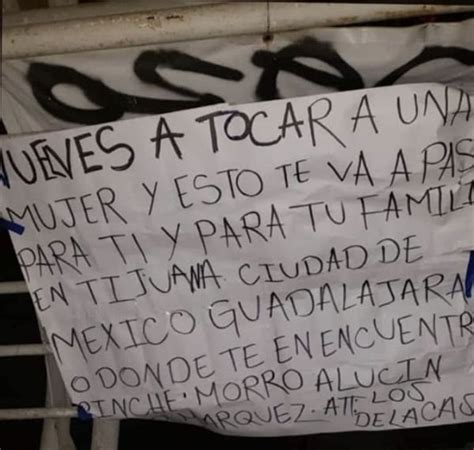 VUEVES A TOCAR A UNA
MUJER Y ESTO TE VA A PAS
PARA TI Y PARA TU FAMILI
EN TIJUANA CIUDAD DE
MEXICO GUADALAJARA
O DONDE TE EN ENCUENTR
PINCHE MORRO ALUCIN
ARQUEZ. ATT. LOS
DELACAS